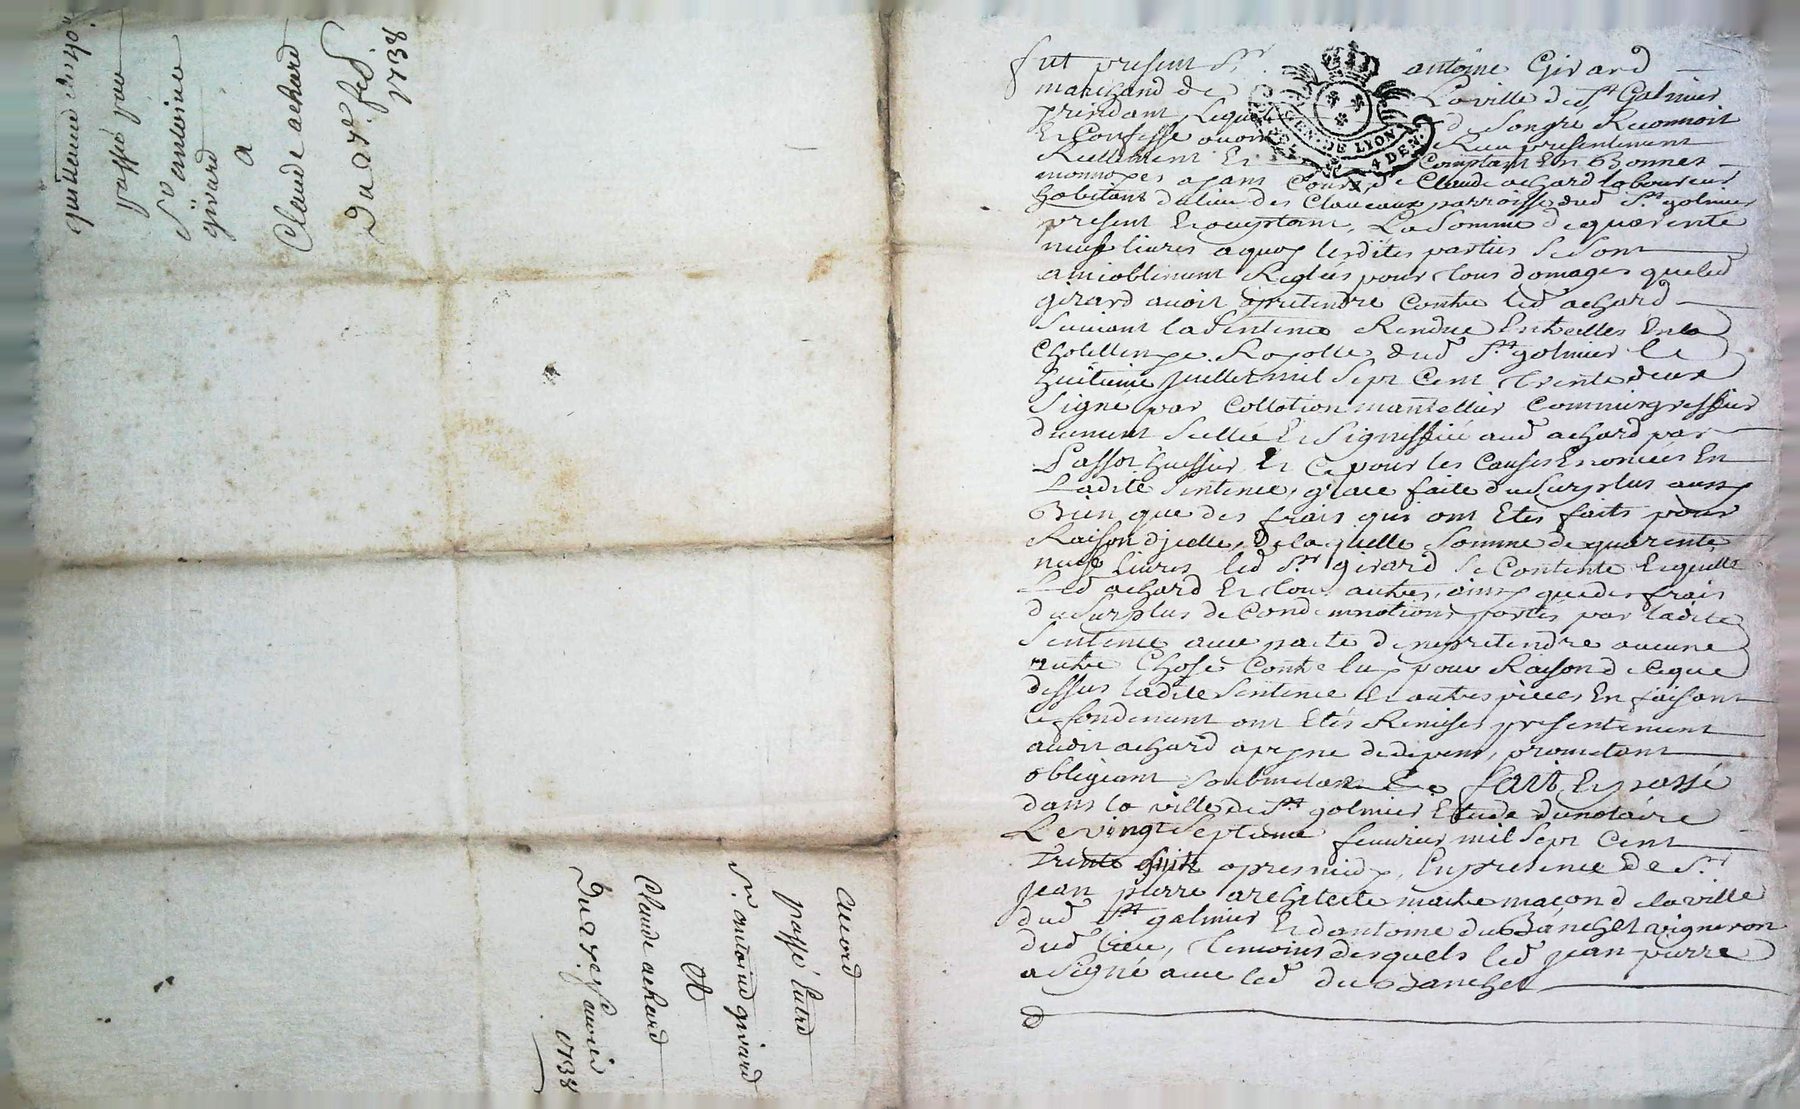 quittance de 49#
passée par
Sr antoine
girard
a
Claude achard
Du 27e fed.
1738
accord
passé Entre
Sr. antoine girard
Et
Claude achard
Du 27e feuvrier
1738
GEN. DE LYON
4 DEN.
fut present Sr antoine Girard
marchand de La ville de St Galmier
prendant Lequel de Songre Reconnoit
Et Confesse avoir Receu presentement
Reellement Et Comptant En Bonnes
monnoyes ayant Cour, de Claude achard laboureur
habitant du lieu des Claveaux parroisse dud St. galmier
present Et acceptant, La Somme de quarente
neuf livres a quoy lesdites parties Se Sont
amiablement Reglées pour tous domages que led
girard avoit a pretendre Contre led achard
Suivant la Sentence Rendue Entre elles En la
Chatellenye Royalle dud St. galmier le
huitieme juillet mil Sept Cent trente deux
Signé par Collation mantellier Commis greffier
duement Scellée Et Signiffiée aud achard par
huissier Et Ce pour les Causes Enoncées En
Ladite Sentence, grace faite du Surplus aussy
Bien que des frais qui ont Etes faits pour
Raison djcelle, De laquelle Somme de quarente
neuf Livres led Sr. girard Se Contente En quitte
Led achard Et tous autres, ainsy que des frais
du Surplus de Condemnations portés par ladite
Sentence avec pacte de ne pretendre aucune
autre Chose Contre luy pour Raison de Ce que
dessus ladite Sentence Et autres pieces En faisant
Ce fondement ont Etés Remises presentement
audit achard a peyne de depens, prometant
obligeant Soubmetant &c. fait Et passé
dans la ville de St galmier Etude du notaire
Le vingt Septieme feuvrier mil Sept Cent
trente huit apres midy, En presence de Sr
jean pierre architecte maitre maçon de la ville
dud St galmier Et dantoine du Banchet vigneron
dud lieu, temoins desquels led jean pierre
a Signé avec led du Banchet